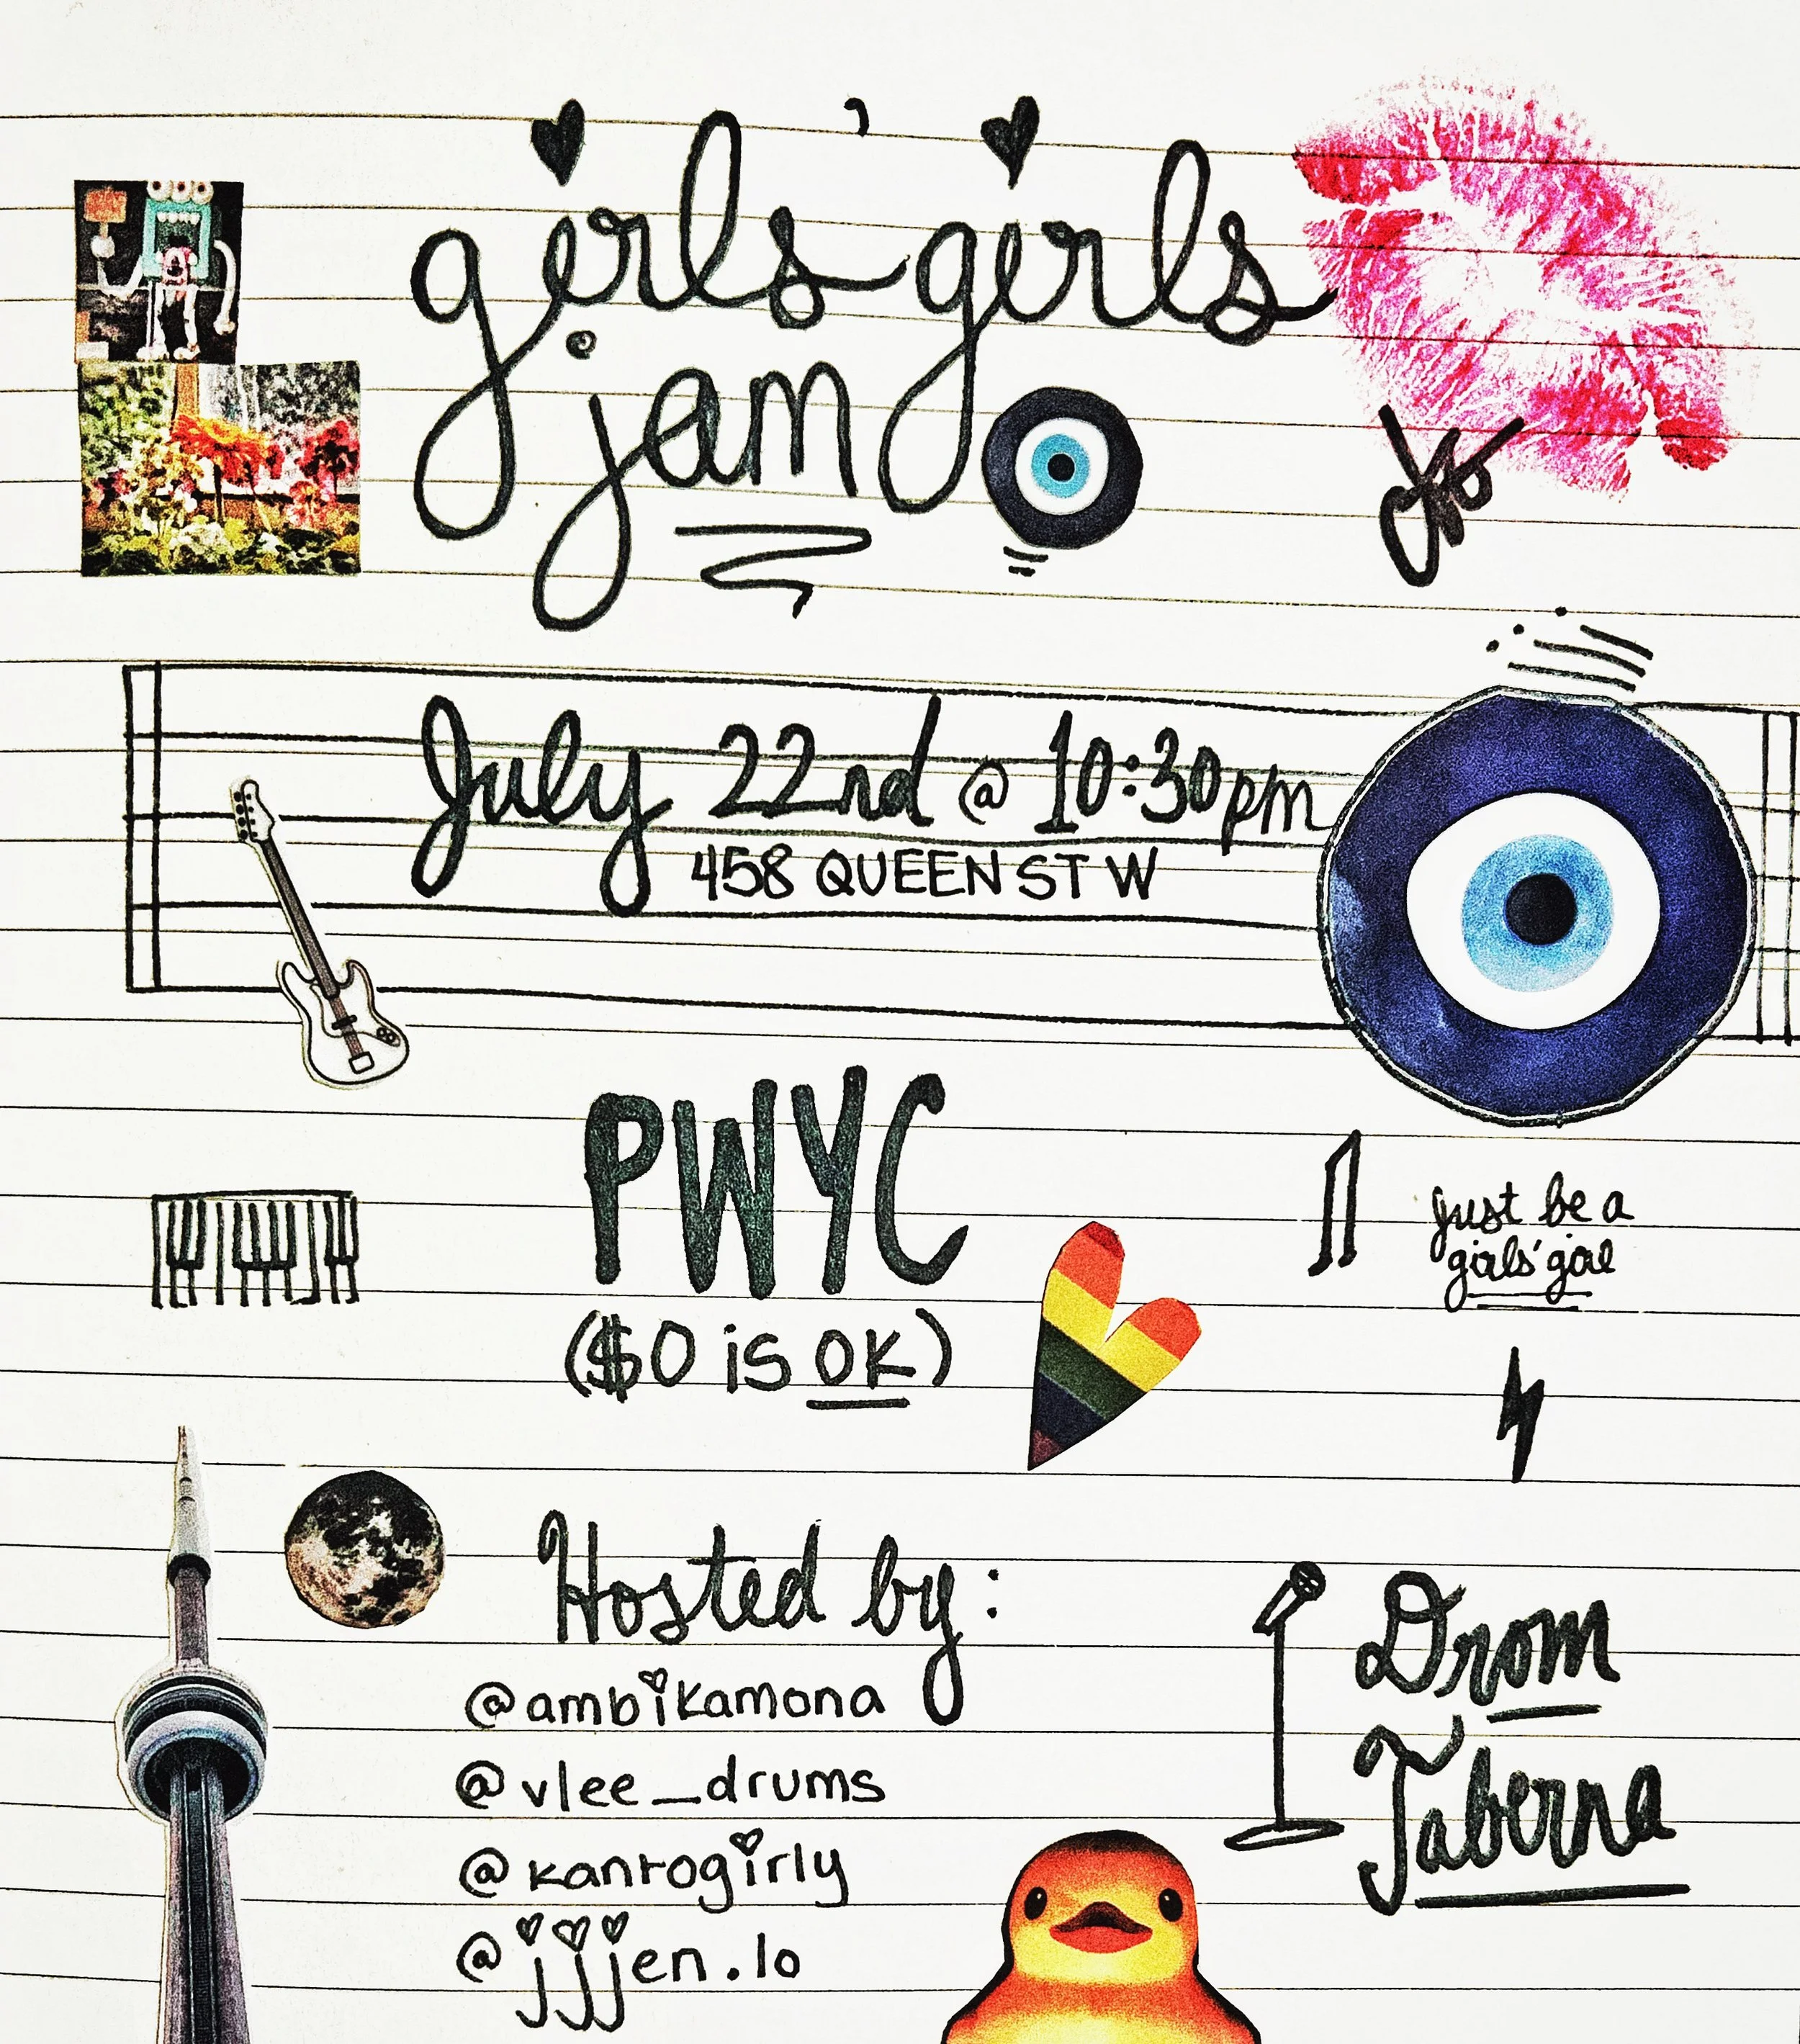 girls' girls
jam
July 22nd @ 10:30pm
458 QUEEN ST W
PWYC
($0 is OK)
just be a
girls' girl
Hosted by:
@ambikamona
@vlee_drums
@kanrogirly
@jjjen.lo
Drom
Taberna